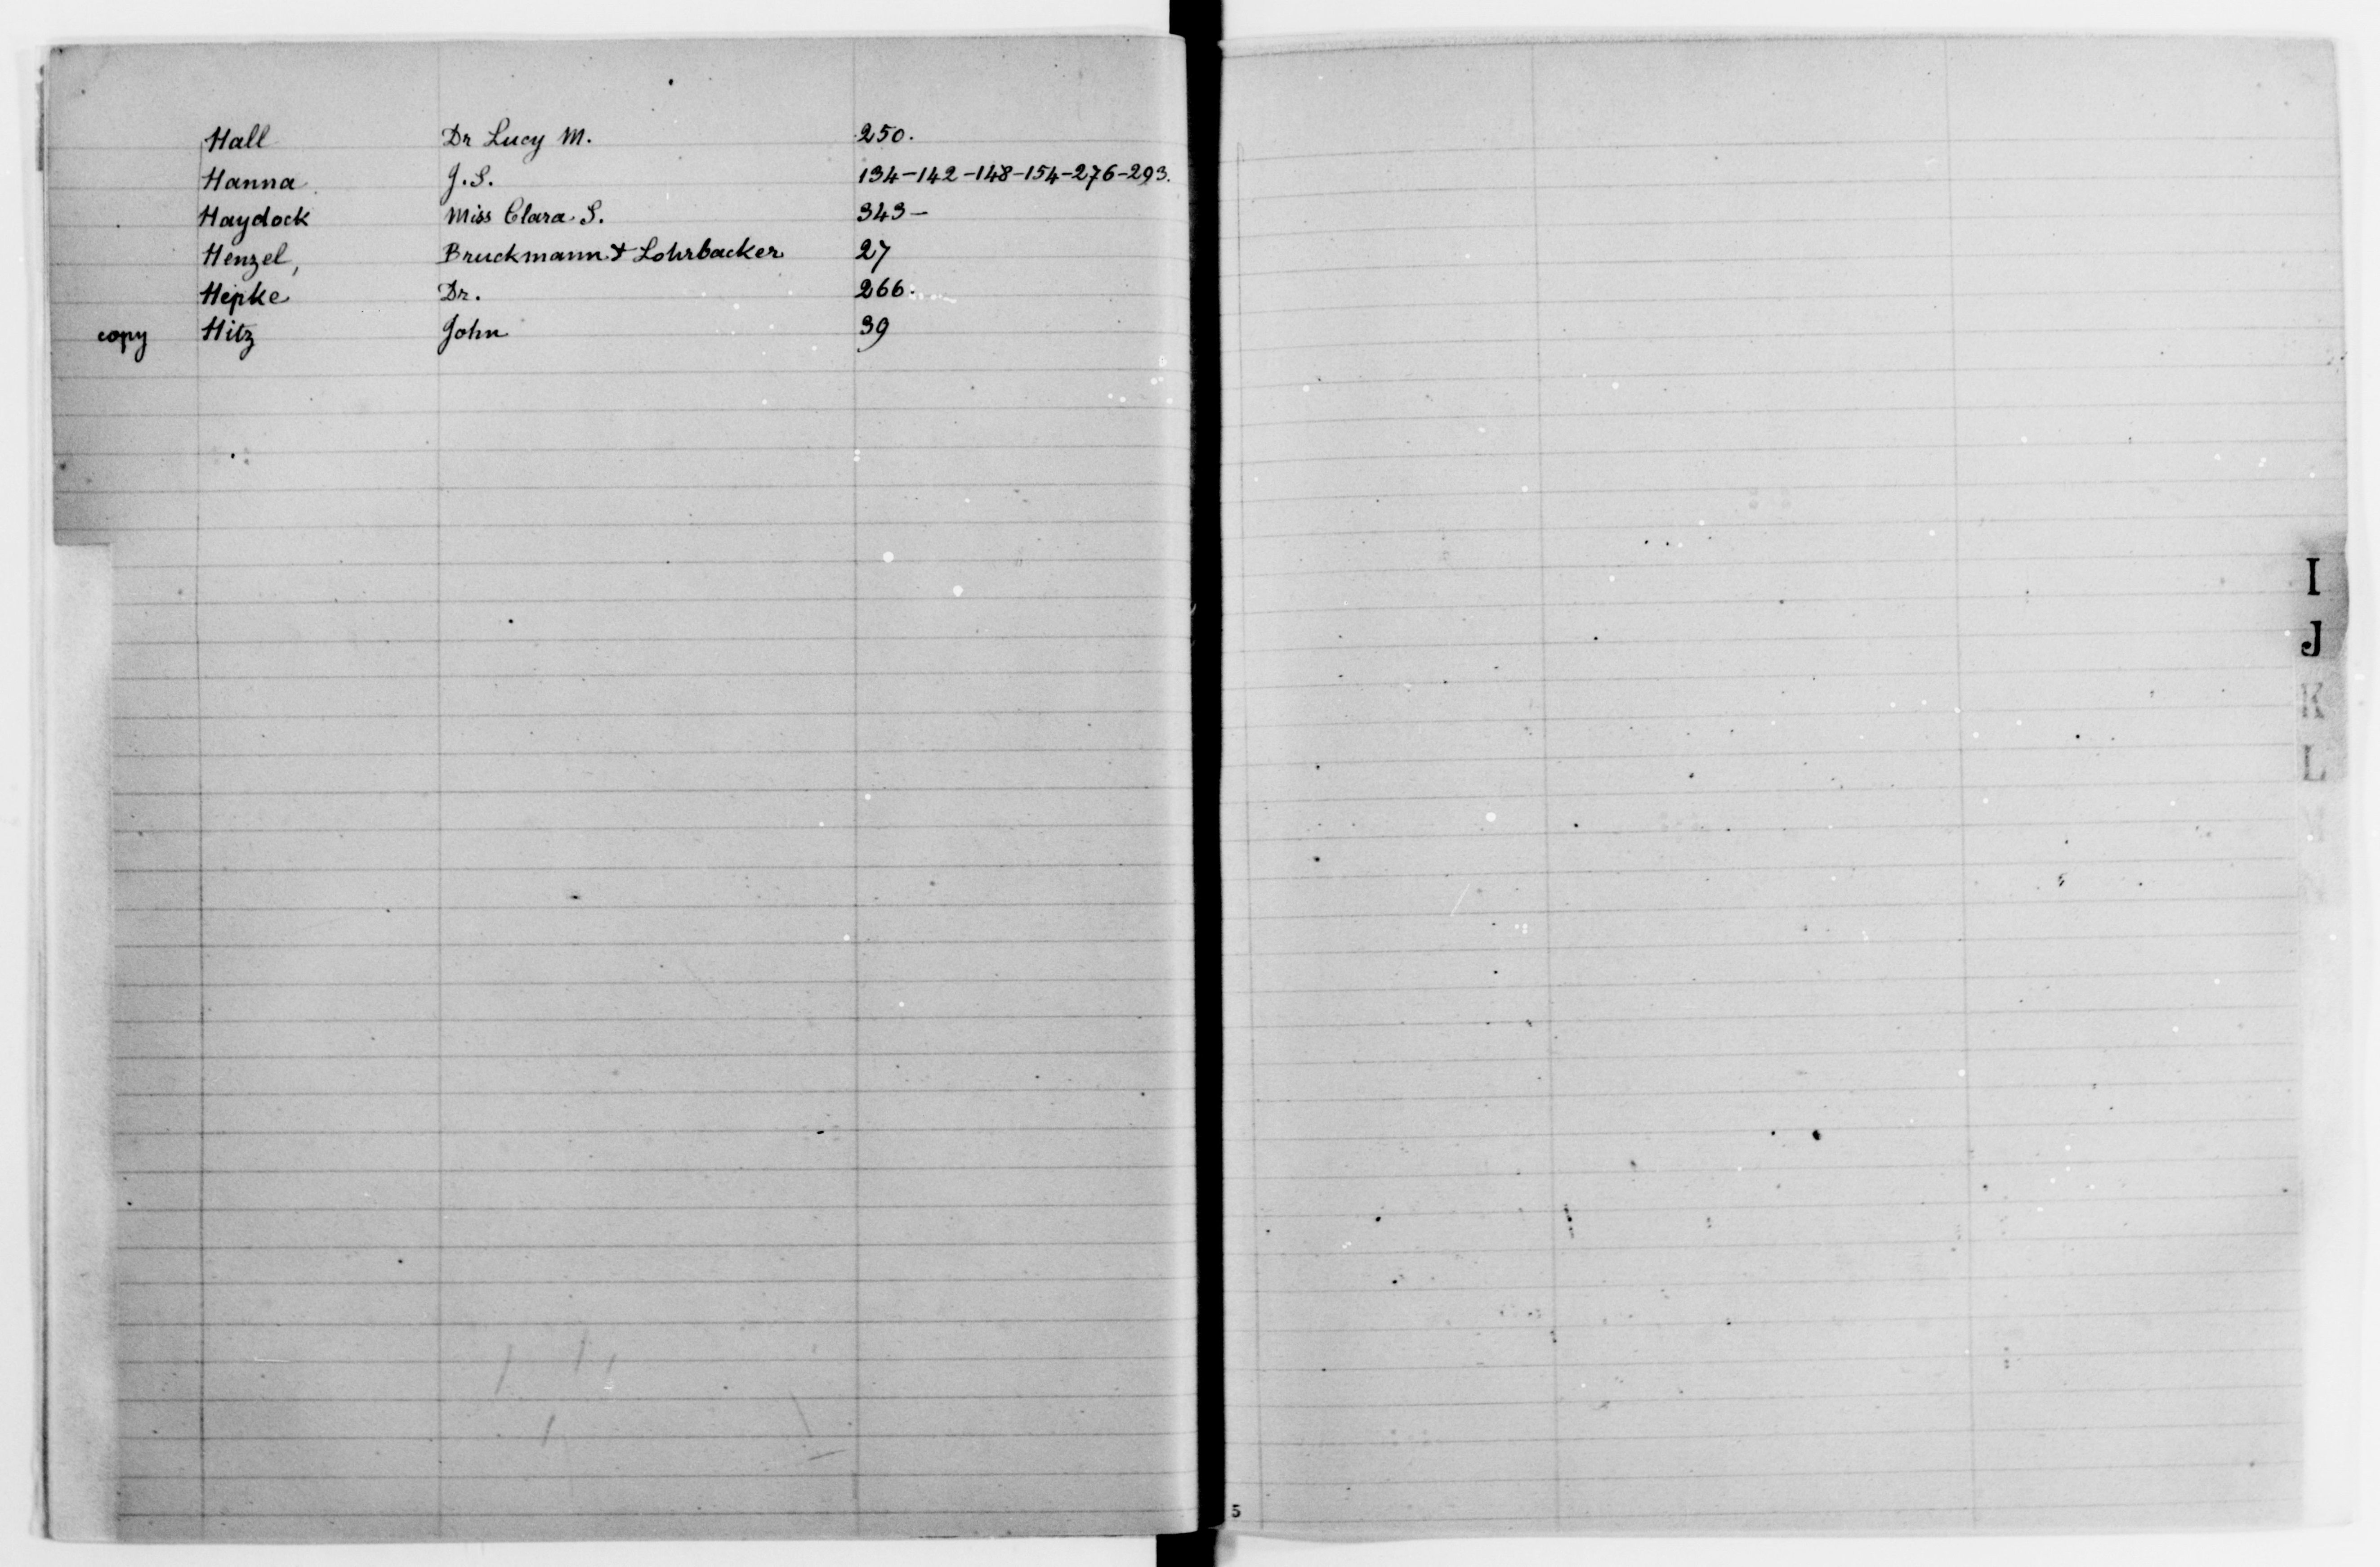 Hall Dr Lucy M. 250.
Hanna J. S. 134-142-148-154-276-293.
Haydock Miss Clara S. 343-
Henzel, Bruckmann & Lohrbacker 27
Hepke Dr. 266.
copy Hitz John 39
I
J
K
L
5